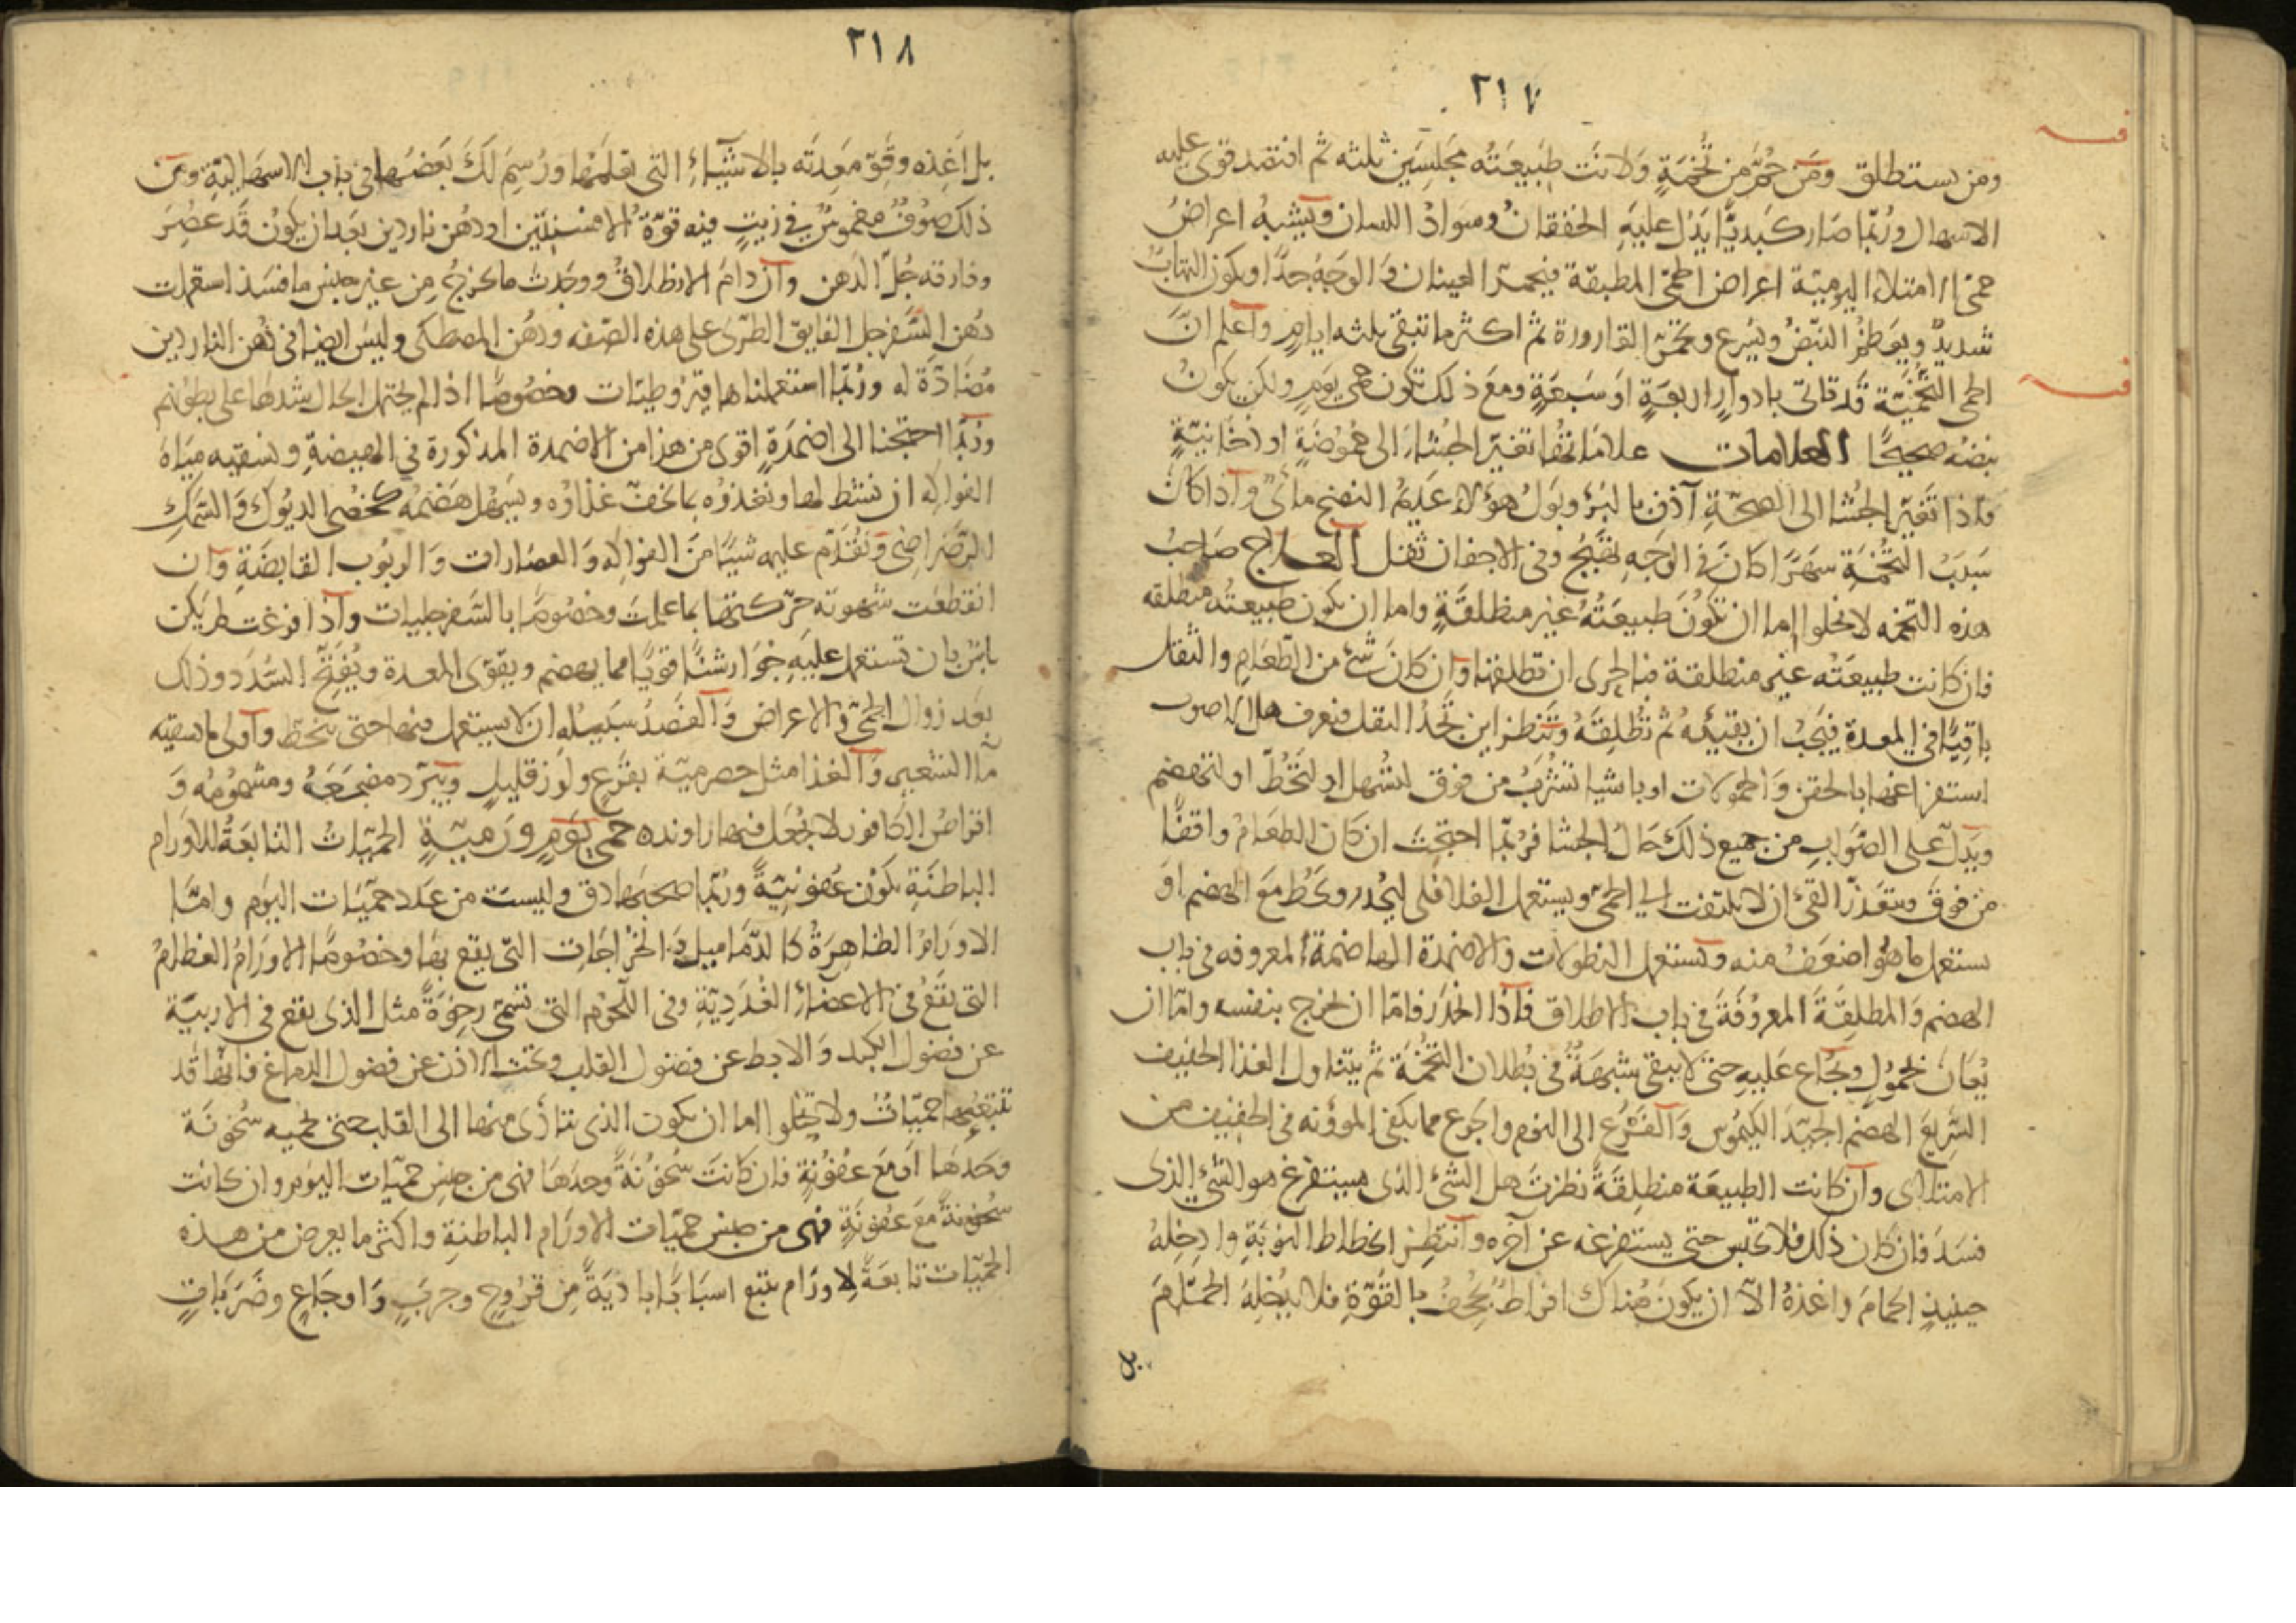 ٣١٧
ومن يستطلق ومن حم من تخمة ولانت طبيعته مجلسين ثلثه ثم افتصد قوى عليه
الاسهال وربما صار كبديا يدل عليه الخفقان وسواد اللسان ويشبه اعراض
حمى الامتلاء اليومية اعراض الحمى المطبقة فيحمر العينان والوجه جدا ويكون التهاب
شديد ويعظم النبض ويسرع ويحمر القارورة ثم اكثر ما تبقى ثلثه ايام واعلم ان
الحمى التخمية قد تاتى بادوار اربعة او سبعة ومع ذلك تكون حمى يوم ولكن يكون
نبضه صحيحا العلامات علاماتها تغير الجشاء الى حموضة او دخانية
فاذا تغير الجشا الى الصحة آذن بالبرؤ وبول هؤلاء عديم النضج مائى واذا كان
سبب التخمة سهرا كان فى الوجه تهبج وفى الاجفان ثقل العلاج صاحب
هذه التخمه لا يخلوا اما ان تكون طبيعته غير منطلقة واما ان يكون طبيعته منطلقه
فان كانت طبيعته غير منطلقة فبالحرى ان تطلقها وان كان شئ من الطعام والثقل
باقيا فى المعدة فيجب ان يقيئه ثم تطلقه وتنظر اين تجد الثقل فتعرف هل الاصوب
استفراغها بالحقن والحمولات او باشيا تشرب من فوق لتسهل او لتحط او لتهضم
ويدل على الصواب من جميع ذلك حال الجشا فربما احتجت ان كان الطعام واقفا
من فوق وتعذر القئ ان لا يلتفت الى الحمى ويستعمل الفلافلى ليحدر ويحط مع الهضم او
يستعمل ما هو اضعف منه ويستعمل النطولات والاضمدة الهاضمة المعروفه فى باب
الهضم والمطلقة المعروفة فى باب الاطلاق فاذا انحدر فاما ان يخرج بنفسه واما ان
يعان بحمول ويجاع عليه حتى لا يبقى شبهة فى بطلان التخمة ثم يتناول الغذا الخفيف
السريع الهضم الجيد الكيموس والفزع الى النوم والجوع مما يكفى المؤونه فى الخفيف من
الامتلاى وان كانت الطبيعة منطلقة نظرت هل الشئ الذى يستفرغ هو الشئ الذى
فسد فان كان ذلك فلا تحبس حتى يستفرغه عن آخره وانتظر انحطاط النوبة وادخله
حينئذ الحمام واغذه الا ان يكون هناك افراط يجحف بالقوة فلا يدخله الحمام
بل
٣١٨
بل اغذه وقو معدته بالاشياء التى تعلمها ورسم لك بعضها فى باب الاسهالية ومن
ذلك صوف مغموس فى زيت فيه قوة الافسنتين او دهن ناردين بعد ان يكون قد عصر
وفارقه جل الدهن وان دام الانطلاق ووجدت ما يخرج من غير جنس ما فسد استعملت
دهن السفرجل الفايق الطرى على هذه الصفه ودهن المصطكى وليس ايضا فى دهن الناردين
مضادة له وربما استعملناها قيروطيات وخصوصا اذا لم يحتمل الحال شدها على بطونهم
وربما احتجنا الى اضمدة اقوى من هذا من الاضمدة المذكورة فى الهيضة ونسقيه مياه
الفواكه ان نشط لها ونغذوه بما يخف غذاؤه ويسهل هضمه كخصى الديوك والسمك
الرضراضى ونقدم عليه شيئا من الفواكه والعصارات والربوب القابضة وان
انقطعت شهوته حركتها بما علمت وخصوصا بالسفرجليات واذا فرغت لم يكن
باس بان تستعمل عليه جوارشنا قويا مما يهضم ويقوى المعدة ويفتح السدد وذلك
بعد زوال الحمى والاعراض والقصد سبيله ان لا يستعمل فيها حتى ينحط واولى ما سقيه
ما الشعير والغذا مثل حصرمية بقرع ولوز قليل ويبرد مضجعه ومشمومه و
اقراص الكافور لا يجعل فيها راونده حمى يوم ورمية الحميات التابعة للاورام
الباطنة يكون عفونية وربما صحبها دق وليست من عدد حميات اليوم واما
الاورام الظاهرة كالدماميل والخراجات التى يقع بها وخصوصا الاورام العظام
التى يقع فى الاعضاء الغددية وفى اللحوم التى تسمى رخوة مثل الذى يقع فى الاربية
عن فضول الكبد والابط عن فضول القلب وتحت الاذن عن فضول الدماغ فانها قد
تتبعها حميات ولا يخلوا اما ان يكون الذى يتأذى منها الى القلب حتى يحميه سخونة
وحدها او مع عفونة فان كانت سخونة وحدها فهى من جنس حميات اليوم وان كانت
سخونة مع عفونة فهى من جنس حميات الاورام الباطنة واكثر ما يعرض من هذه
الحميات تابعة لاورام يتبع اسبابا بادية من قروح وجرب واوجاع وضربات